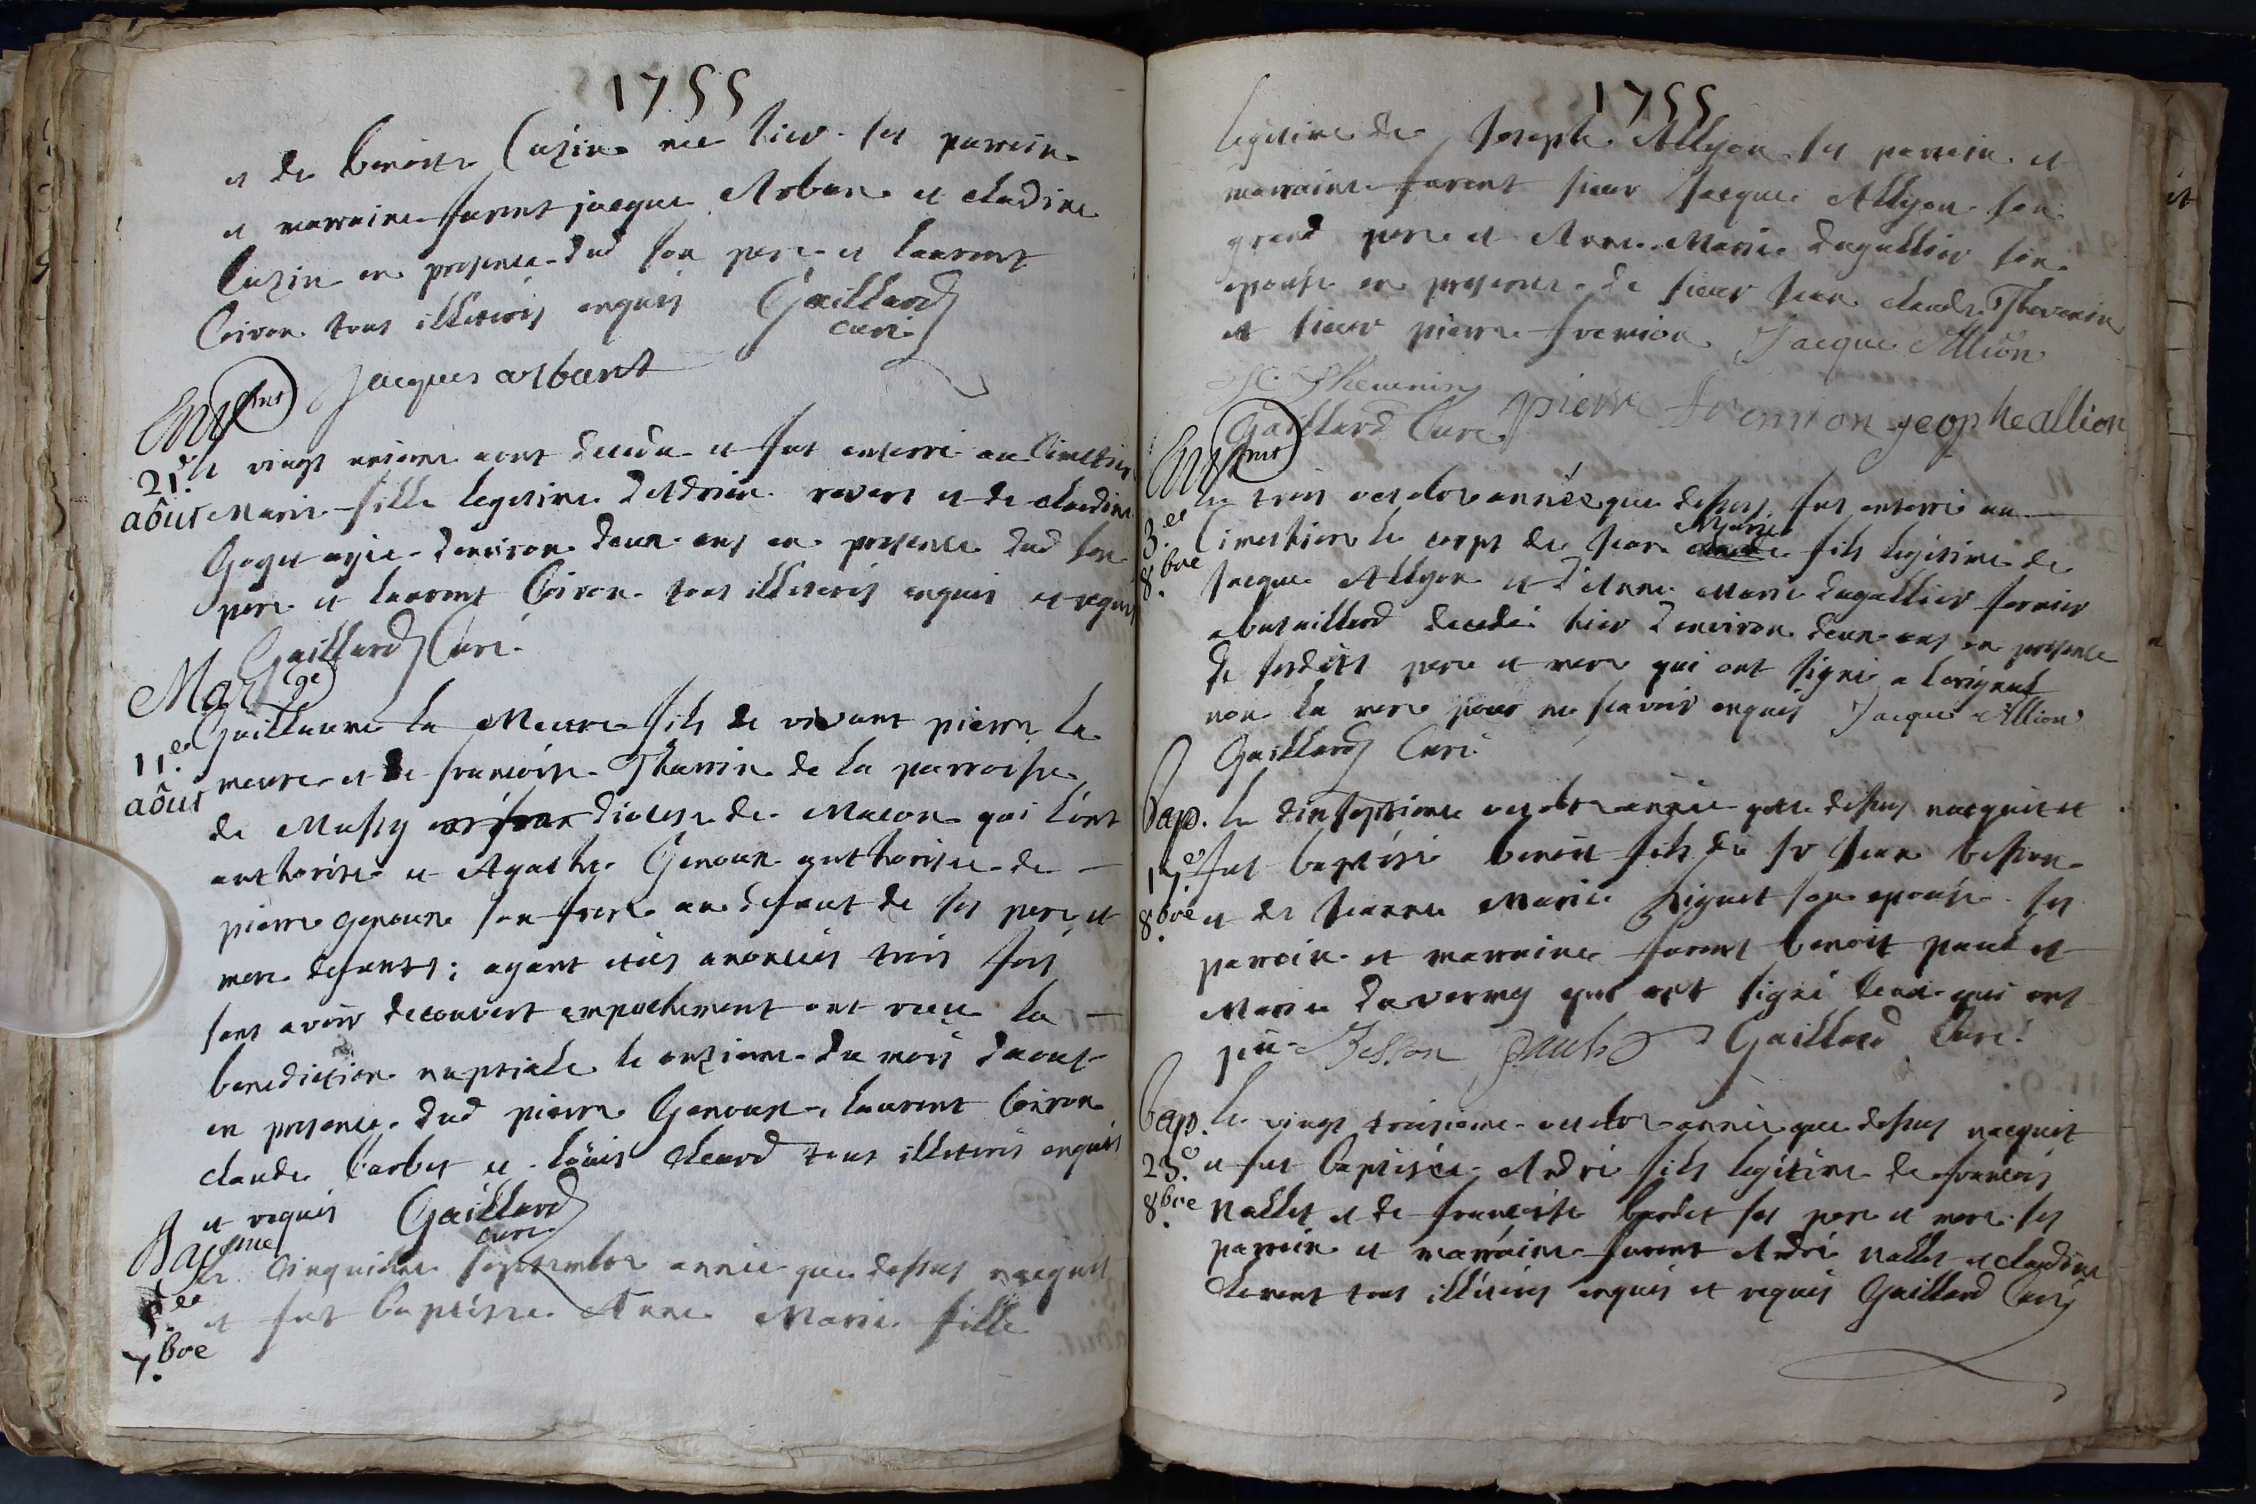 1755
et de benoite Cuzin nee hier. ses parrein
et marraine furent jacque Arban et claudine
Cuzin en presence dud son pere et laurent
Coiron tous illiterés enquis Gaillard
curé
jacques arbant
Ent.mt
21.e
août
le vingt unieme aout deceda et fut enterré au Cimetiere
Marie fille legitime d'Adrien revert et de claudine
Goyet agée denviron deux ans en presence dud son
pere et laurent Coiron tous illiterés enquis et requis
Gaillard Curé.
Mar.ge
11.e
août
Guillaume la Meure fils de vivant pierre la
meure et de francoise Thavrin de la parroisse
de Mussy diocese de Macon qui l'ont
authorisé et Agathe Genoux authorisée de
pierre genoux son frere au defaut de ses pere et
mere defunts; ayant étés anoncés trois fois
sans avoir decouvert empechement ont recu la
benediction nuptiale le onzieme du mois daout
en presence dud pierre Genoux, laurent Coiron
claude barbet et loüis cleard tous illiterés enquis
et requis Gaillard
curé
Bap.sme
5.e
7.bre
le Cinquieme septembre année que dessus nacquit
et fut baptisée Anne Marie fille
1755
legitime de Joseph Allyon ses parrein et
marraine furent sieur Jacque Allyon son
grand pere et Anne Marie dugallier son
epouse en presence de sieur Jean claude Thevenin
et sieur pierre fremion Jacque Allion
J C Thevenin
Gaillard Curé pierre fremion jeophe allion
Ent.mt
3.e
8.bre
le trois octobre année que dessus fut enterré au
Cimettiere le corps de Jean Marie fils legitime de
Jacque Allyon et d'Anne Marie dugallier fermier
a butaillard decedé hier denviron deux ans en presence
de sesdits pere et mere qui ont signé a loriginal
non la mere pour ne scavoir enquis Jacque Allion
Gaillard Curé
Bap.
17.e
8.bre
le dixseptieme octobre année que dessus nacquit et
fut baptisé benoit fils de sr Jean besson
et de Jeanne Marie Miguet son epouse. ses
parrein et marraine furent benoit paul et
Marie duvernay qui ont signé ceux qui ont
pû. Besson paul Gaillard Curé
Bap.
23.e
8.bre
le vingt troisieme octobre année que dessus nacquit
et fut baptisée André fils legitime de francois
Nallet et de francoise bardet ses pere et mere. ses
parrein et marraine furent André Nallet et claudine
clement tous illiterés enquis et requis Gaillard Curé